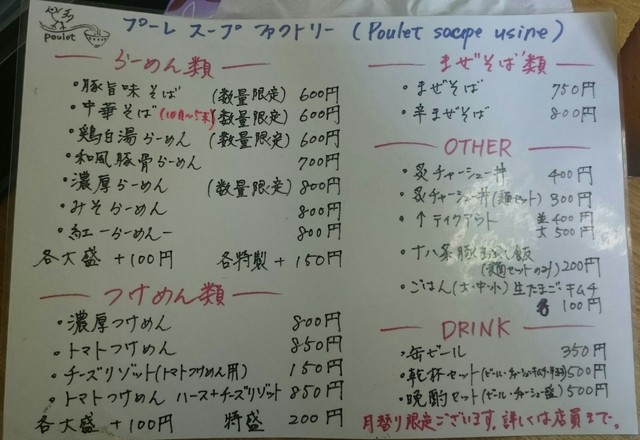 poulet
プーレ スープ ファクトリー (Poulet soupe usine)
らーめん類
・豚旨味そば (数量限定) 600円
・中華そば (数量限定) 600円
・鶏白湯らーめん (数量限定) 600円
・和風豚骨らーめん 700円
・濃厚らーめん (数量限定) 800円
・みそらーめん 800円
・紅一らーめん 800円
各大盛 +100円 各特製 +150円
つけめん類
・濃厚つけめん 800円
・トマトつけめん 850円
・チーズリゾット(トマトつけめん用) 150円
・トマトつけめん ハース+チーズリゾット 850円
各大盛 +100円 特盛 200円
まぜそば類
・まぜそば 750円
・辛まぜそば 800円
OTHER
・炙チャーシュー丼 400円
・炙チャーシュー丼(麺セット) 300円
・↑テイクアウト 並400円
大500円
・十八条豚まぶし飯
(麺セットのみ) 200円
・ごはん(大・中・小) 生たまご・キムチ
各100円
DRINK
・缶ビール 350円
・乾杯セット 500円
・晩酌セット(ビール・チャーシュー盛) 500円
月替り限定ございます。詳しくは店員まで。